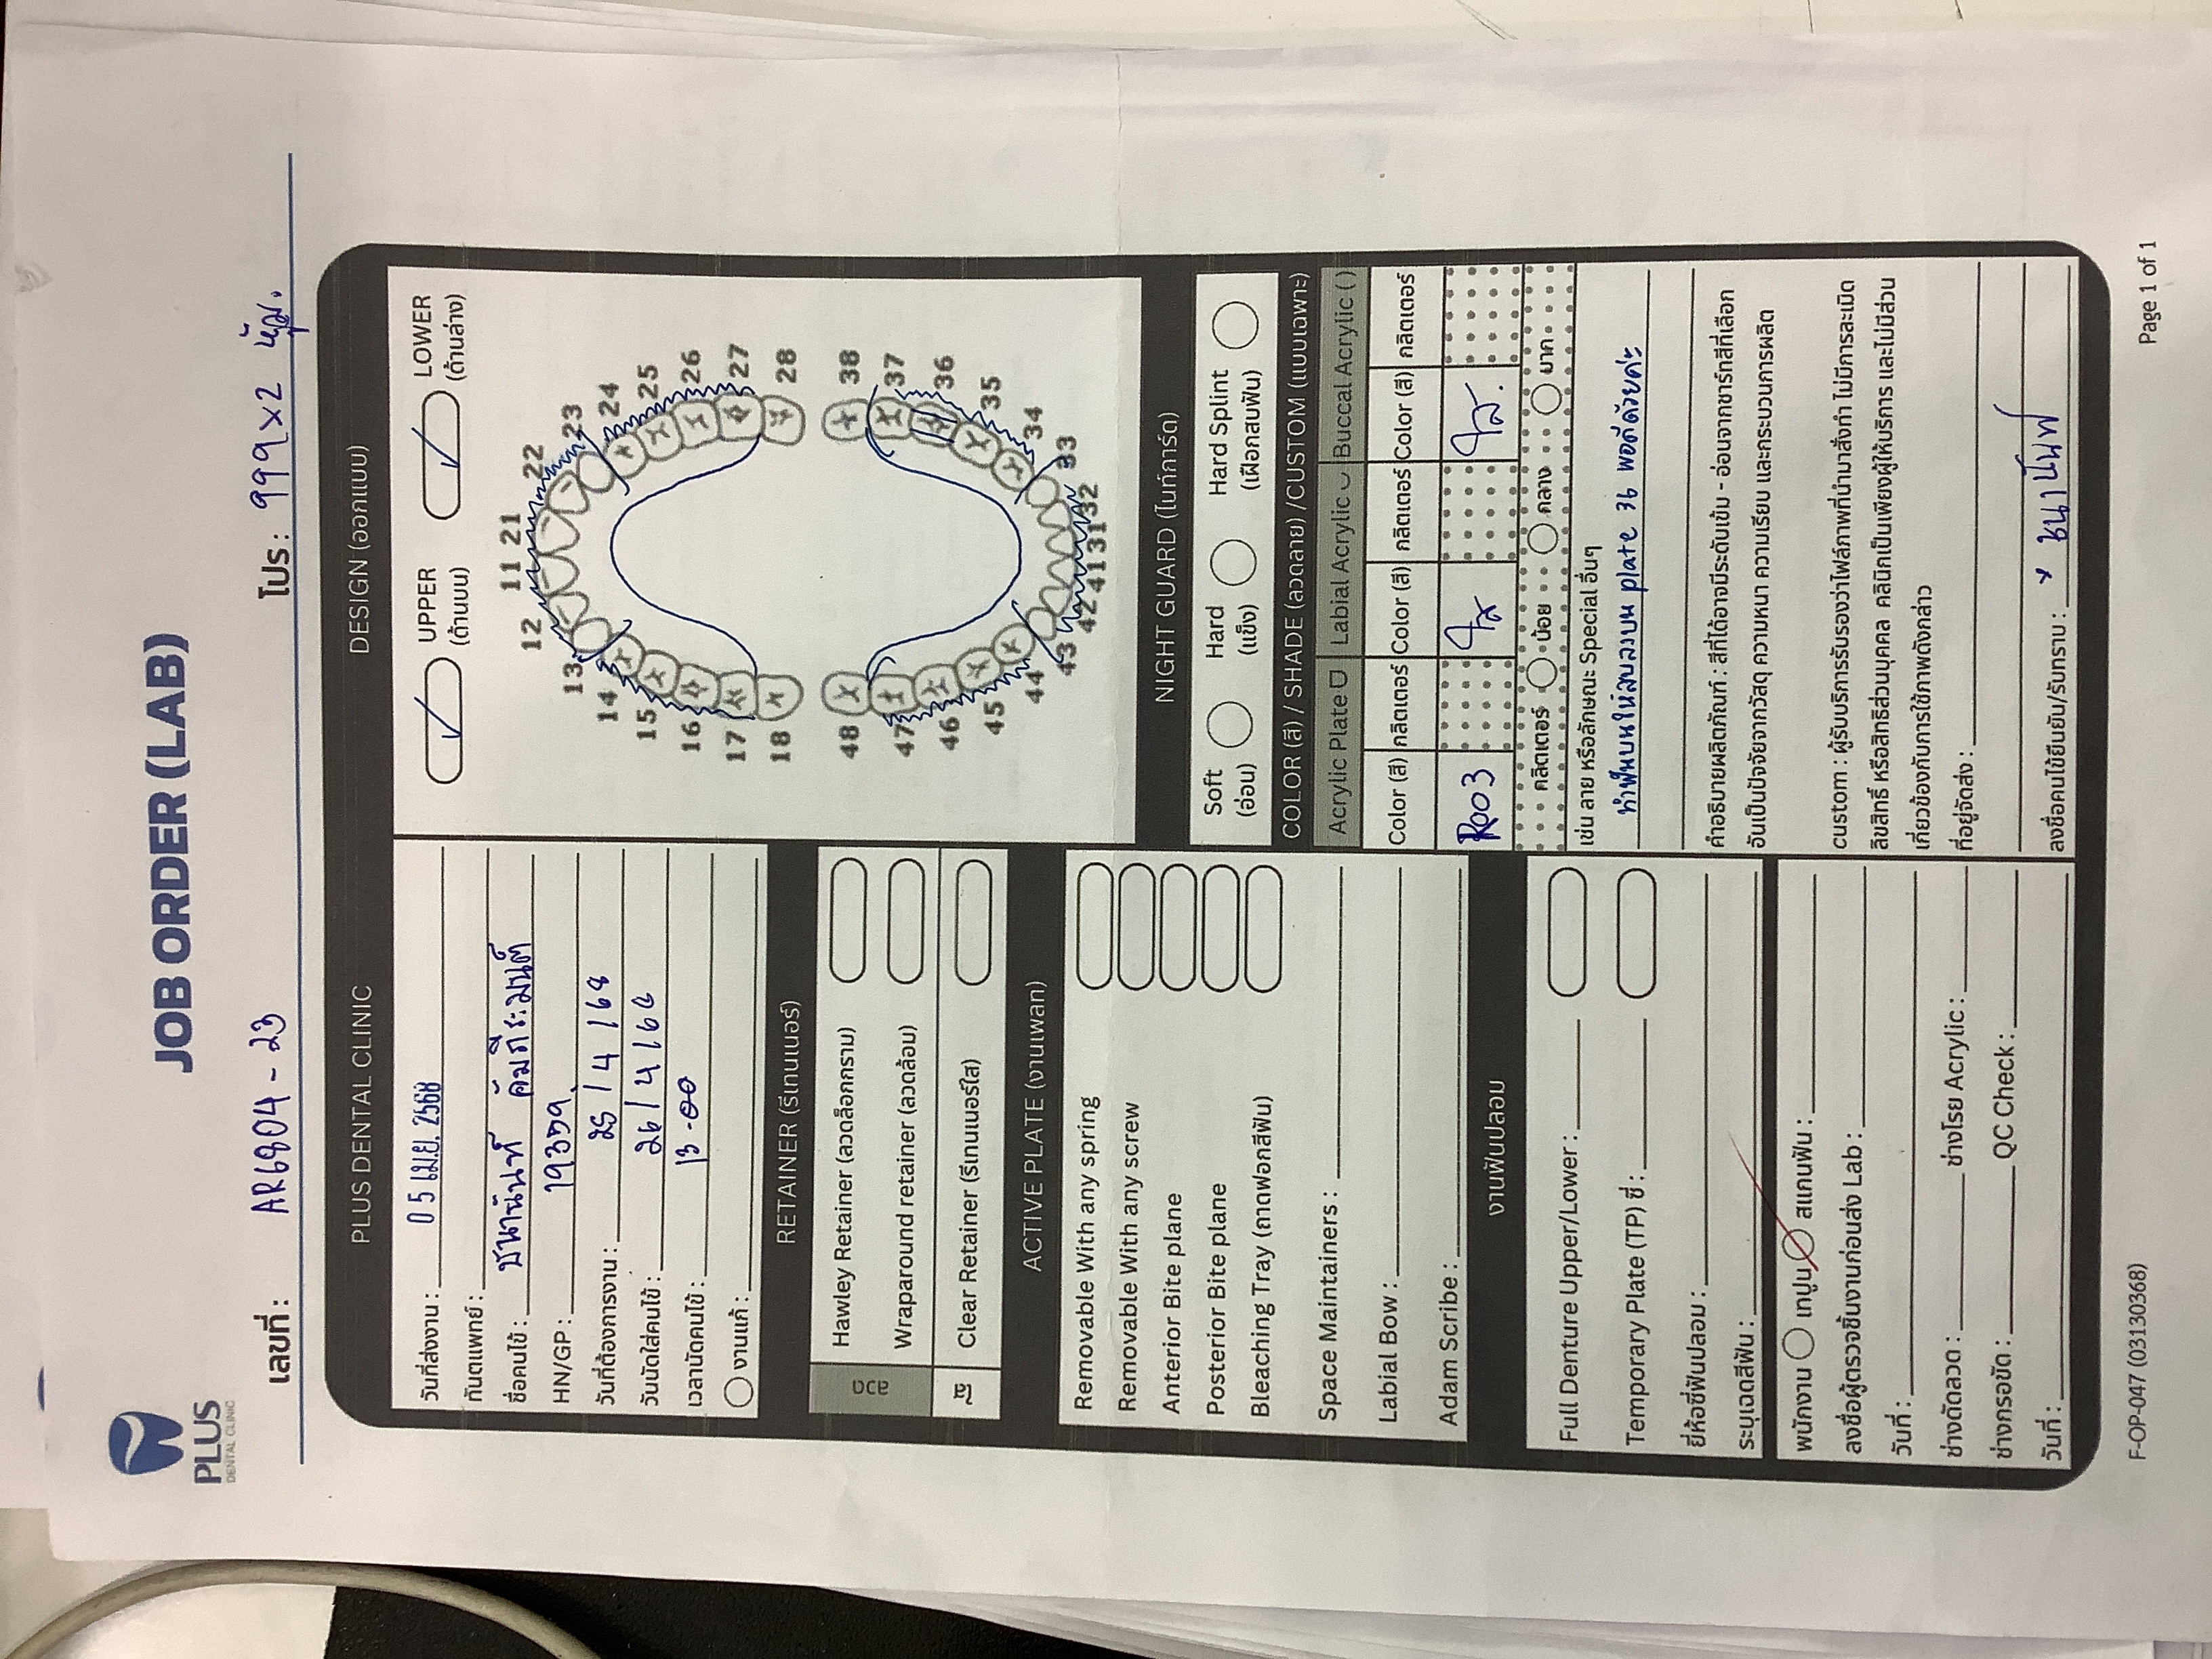 PLUS
DENTAL CLINIC
JOB ORDER (LAB)
เลขที่ : AR6804 - 23
โปร : 999x2 หุ้ม.
PLUS DENTAL CLINIC
วันที่ส่งงาน : 05 เม.ย. 2568
ทันตแพทย์ :
ชื่อคนไข้ : ชนานันท์ คัมภีระมนต์
HN/GP : 19359
วันที่ต้องการงาน : 25 / 4 / 68
วันนัดใส่คนไข้ : 26 / 4 / 68
เวลานัดคนไข้ : 13-00
งานแก้ :
RETAINER (รีเทนเนอร์)
ลวด
Hawley Retainer (ลวดล็อกกราม)
Wraparound retainer (ลวดล้อม)
ใส
Clear Retainer (รีเทนเนอร์ใส)
ACTIVE PLATE (งานเพลท)
Removable With any spring
Removable With any screw
Anterior Bite plane
Posterior Bite plane
Bleaching Tray (ถาดฟอกสีฟัน)
Space Maintainers :
Labial Bow :
Adam Scribe :
งานฟันปลอม
Full Denture Upper/Lower :
Temporary Plate (TP) ซี่ :
ยี่ห้อซี่ฟันปลอม :
ระบุเฉดสีฟัน :
พนักงาน เทปูน สแกนฟัน :
ลงชื่อผู้ตรวจชิ้นงานก่อนส่ง Lab :
วันที่ :
ช่างดัดลวด : ช่างโรย Acrylic :
ช่างกรอขัด : QC Check :
วันที่ :
DESIGN (ออกแบบ)
UPPER
(ด้านบน)
LOWER
(ด้านล่าง)
11 21
12 22
13 23
14 24
15 25
16 26
17 27
18 28
48 38
47 37
46 36
45 35
44 34
43 33
42 41 31 32
NIGHT GUARD (ไนท์การ์ด)
Soft
(อ่อน)
Hard
(แข็ง)
Hard Splint
(เฝือกสบฟัน)
COLOR (สี) / SHADE (ลวดลาย) /CUSTOM (แบบเฉพาะ)
Acrylic Plate Labial Acrylic Buccal Acrylic ( )
Color (สี) กลิตเตอร์ Color (สี) กลิตเตอร์ Color (สี) กลิตเตอร์
R003 ใส ใส.
กลิตเตอร์ น้อย กลาง มาก
เช่น ลาย หรือลักษณะ Special อื่นๆ
ทำฟันบนให้สบลงบน plate 36 พอดีด้วยค่ะ
คำอธิบายผลิตภัณฑ์ : สีที่ได้อาจมีระดับเข้ม - อ่อนจากชาร์ทสีที่เลือก
อันเป็นปัจจัยจากวัสดุ ความหนา ความเรียบ และกระบวนการผลิต
custom : ผู้รับบริการรับรองว่าไฟล์ภาพที่นำมาสั่งทำ ไม่มีการละเมิด
ลิขสิทธิ์ หรือสิทธิส่วนบุคคล คลินิกเป็นเพียงผู้ให้บริการ และไม่มีส่วน
เกี่ยวข้องกับการใช้ภาพดังกล่าว
ที่อยู่จัดส่ง :
ลงชื่อคนไข้ยืนยัน/รับทราบ : * ชนานันท์
F-OP-047 (03130368)
Page 1 of 1